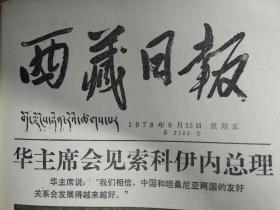 西藏日报
1978年9月15日 星期五
华主席会见索科伊内总理
华主席说："我们相信，中国和坦桑尼亚两国的友好
关系会发展得越来越好。"